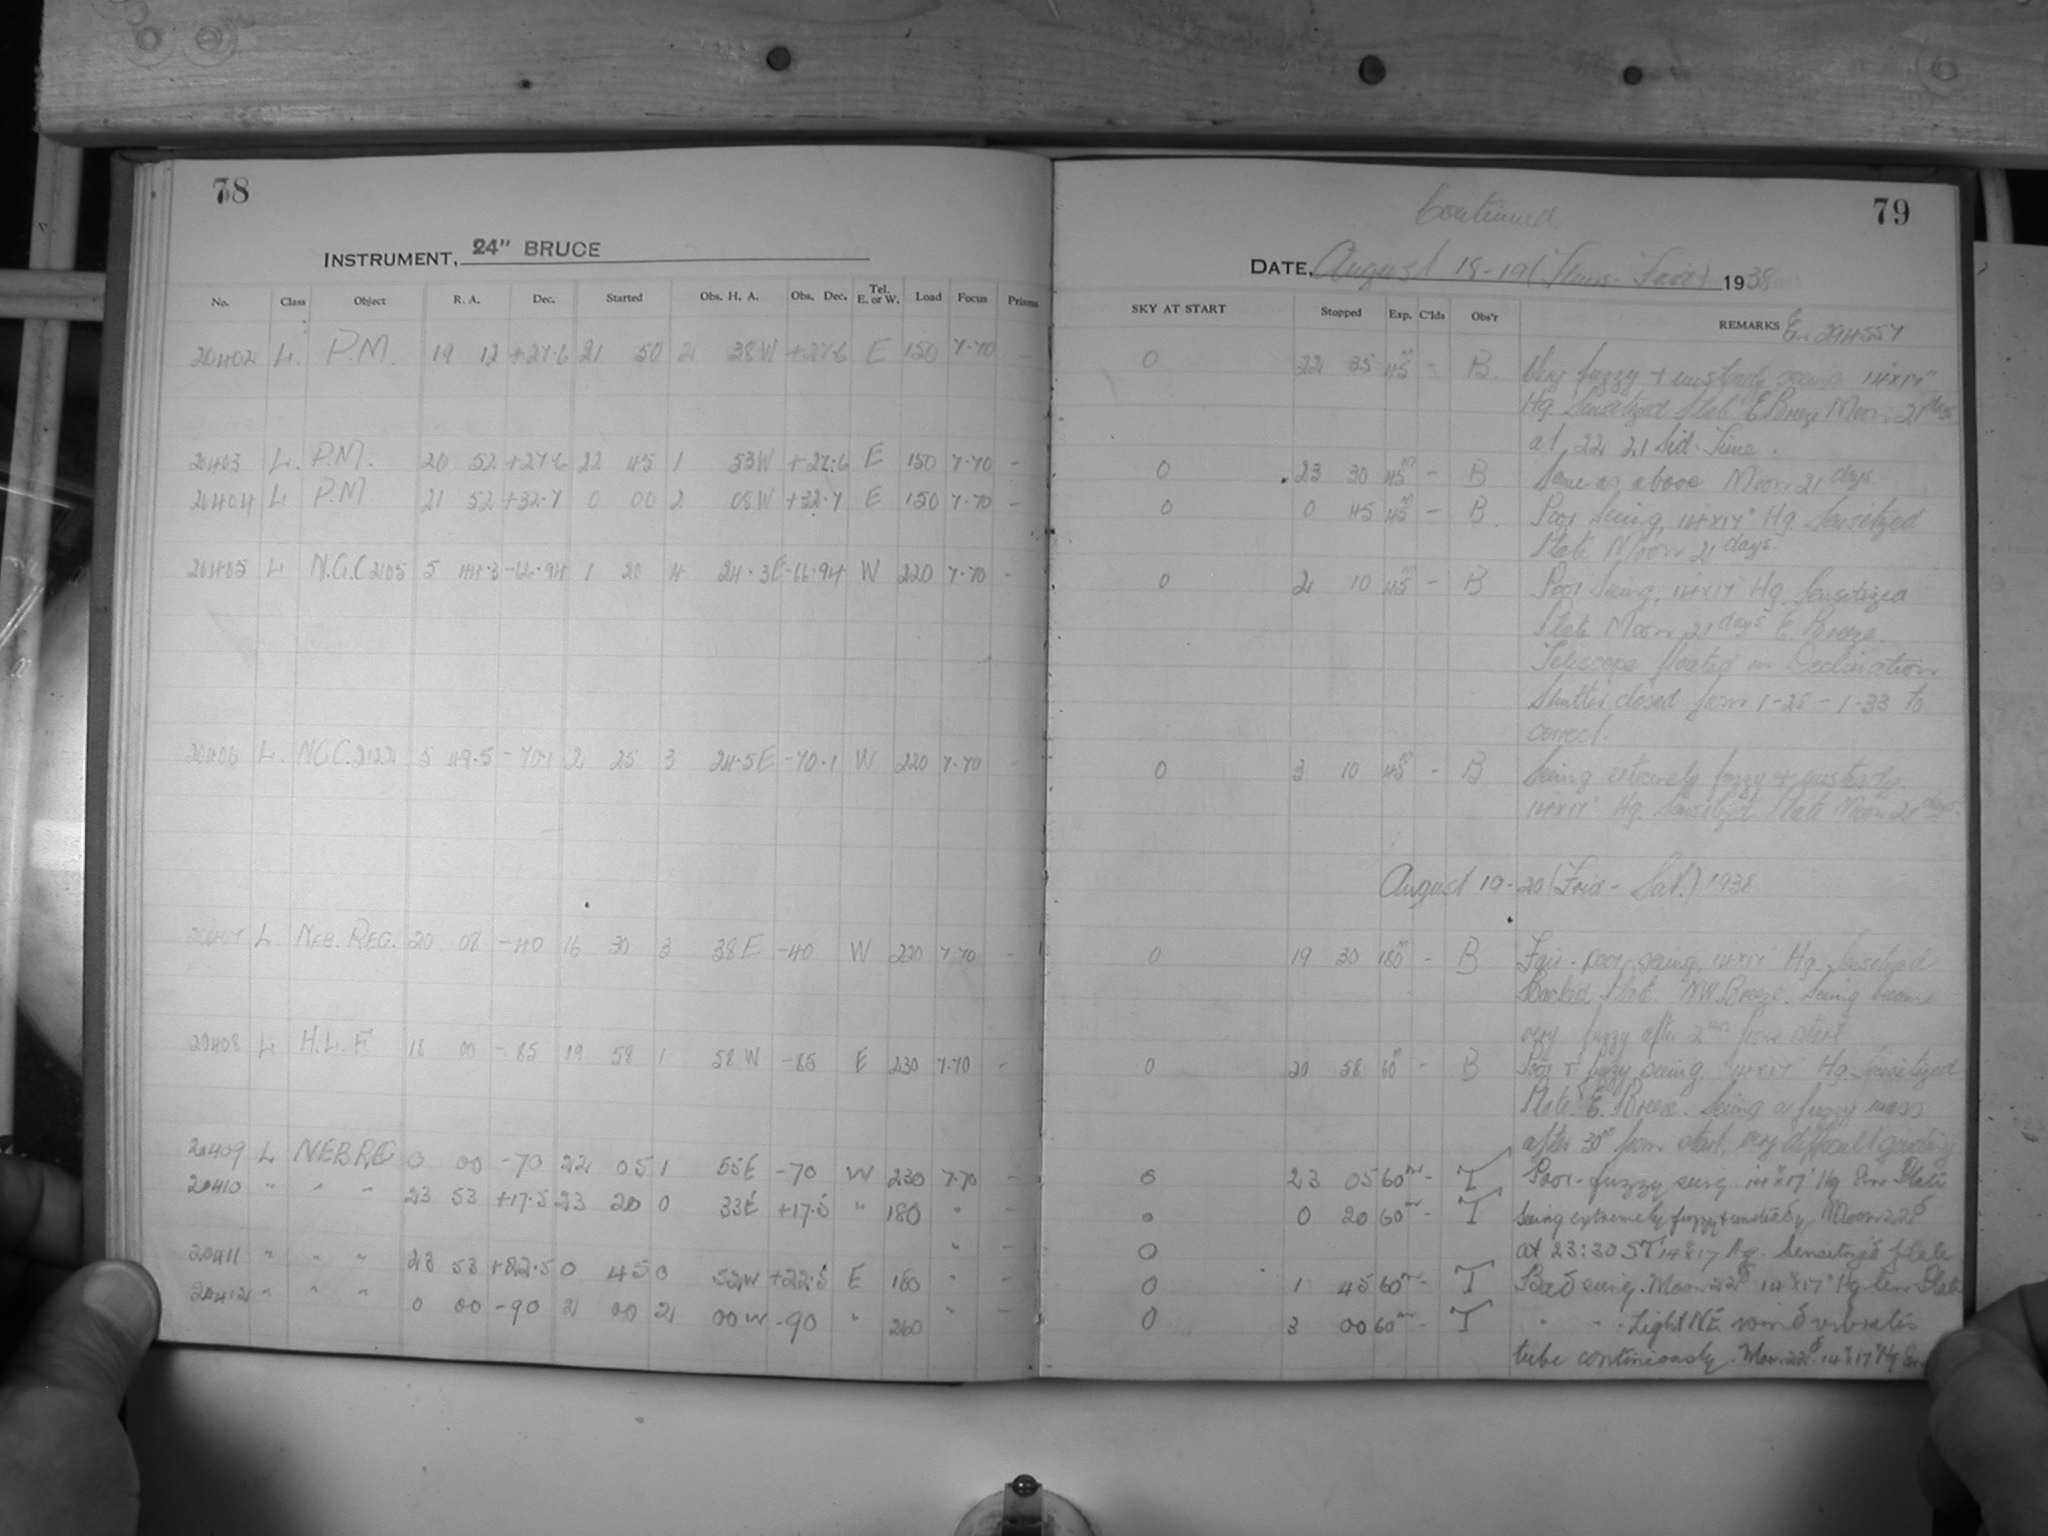 78
INSTRUMENT, 24" BRUCE
No. Class Object R. A. Dec. Started Obs. H. A. Obs. Dec. Tel. E. or W. Load Focus Prisms
20402 L. P.M. 19 12 +27.6 21 50 2 38W +27.6 E 150 7.70 -
20403 L. P.M. 20 52 +27.6 22 45 1 53W +27.6 E 150 7.70 -
20404 L P.M 21 52 +32.7 0 00 2 08W +32.7 E 150 7.70 -
20405 L N.G.C 2105 5 44.3 -66.94 1 20 4 24.3E -66.94 W 220 7.70 -
20406 L. N.G.C. 2122 5 49.5 -70.1 2 25 3 24.5E -70.1 W 220 7.70 -
20407 L NEB. REG. 20 07 -40 16 30 3 38E -40 W 220 7.70 -
20408 L H.L.F. 18 00 -85 19 58 1 58W -85 E 230 7.70 -
20409 L NEB REG 0 00 -70 22 05 1 55E -70 W 230 7.70 -
20410 " " " 23 53 +17.5 23 20 0 33E +17.5 " 180 " -
20411 " " " 23 53 +22.5 0 45 0 52W +22.5 E 180 " -
20412 " " " 0 00 -90 2 00 2 00W -90 " 260 " -
79
Continued
DATE, August 18-19 (Thurs- 1938
SKY AT START Stopped Exp. C'lds Obs'r REMARKS
0 22 35 45m - B. Very fuzzy + unsteady seeing 14"x17"
Hg. Sensetized Plate E Breeze Moon 21 days
at 22 21 Sid. Time.
0 23 30 45m - B Same as above Moon 21 days
0 0 45 45m - B. Poor Seeing, 14"x17" Hg Sensetized
Plate Moon 21 days.
0 2 10 45m - B Poor Seeing, 14"x17" Hg Sensetized
Plate Moon 21 days E. Breeze.
Telescope floated in Declination
Shutter closed from 1-28 - 1-33 to
correct.
0 3 10 45m - B Seeing extremely fuzzy + unsteady
14"x17" Hg. Sensetized Plate Moon 21 days
August 19-20 (Frid - Sat.) 1938
0 19 30 180m - B Fair - poor seeing, 14"x17" Hg. Sensetized
Backed Plate. NW. Breeze. Seeing became
very fuzzy after 2 hrs from start
0 20 58 60m - B Poor + fuzzy seeing, 14"x17" Hg Sensetized
Plate E. Breeze. Seeing a fuzzy mass
after 30m from start. very difficult guiding
0 23 05 60m - T Poor - fuzzy seeing. 14"x17" Hg Sen Plate
0 0 20 60m - T Seeing extremely fuzzy + unsteady. Moon 22d
0 at 23:30 ST 14"x17" Hg. Sensitized plate
0 1 45 60m - T Bad seeing. Moon 22d 14"x17" Hg Sen Plate
0 3 00 60m - T " " Light NE wind vibrates
tube continiously. Moon 22d. 14"x17" Hg Sen